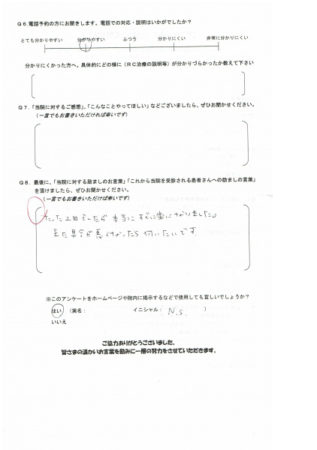 Q6 電話予約の方にお聞きします。電話での対応・説明はいかがでしたか?
とても分かりやすい 分かりやすい ふつう 分かりにくい 非常に分かりにくい
分かりにくかった方へ、具体的にどの様に(RC治療の説明等)が分かりづらかったか教えて下さい
Q7.「当院に対するご感想」、「こんなことやってほしい」などございましたら、ぜひお聞かせください。
(一言でもお書きいただければ幸いです)
Q8. 最後に、「当院に対する励ましのお言葉」「これから当院を受診される患者さんへの励ましの言葉」
を頂けましたら、ぜひお聞かせください。
(一言でもお書きいただければ幸いです)
たった
本当に
になりました。
また
たら伺いたいです
※このアンケートをホームページや院内に掲示するなどで使用しても宜しいでしょうか?
はい (実名: イニシャル: N.S. )
いいえ
ご協力ありがとうございました。
皆さまの温かいお言葉を励みに一層の努力をさせていただきます。